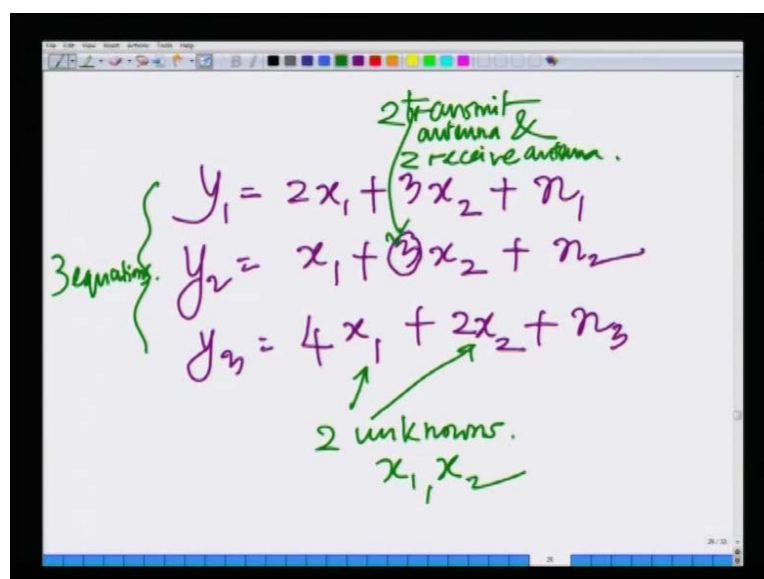 File Edit View Insert Actions Tools Help
2 transmit
antenna &
2 receive antenna.
y₁ = 2x₁ + 3x₂ + n₁
3 equations. y₂ = x₁ + 3x₂ + n₂
y₃ = 4x₁ + 2x₂ + n₃
2 unknowns.
x₁, x₂